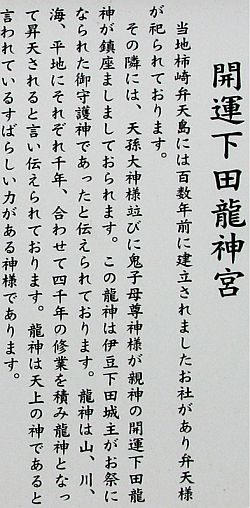 開運下田龍神宮
当地柿崎弁天島には百数年前に建立されましたお社があり弁天様
が祀られております。
その隣には、天孫大神様竝びに鬼子母尊神様が親神の開運下田龍
神が鎮座ましましておられます。この龍神は伊豆下田城主がお祭に
なられた御守護神であったと伝えられております。龍神は山、川、
海、平地にそれぞれ千年、合わせて四千年の修業を積み龍神となっ
て昇天されると言い伝えられております。龍神は天上の神であると
言われているすばらしい力がある神様であります。